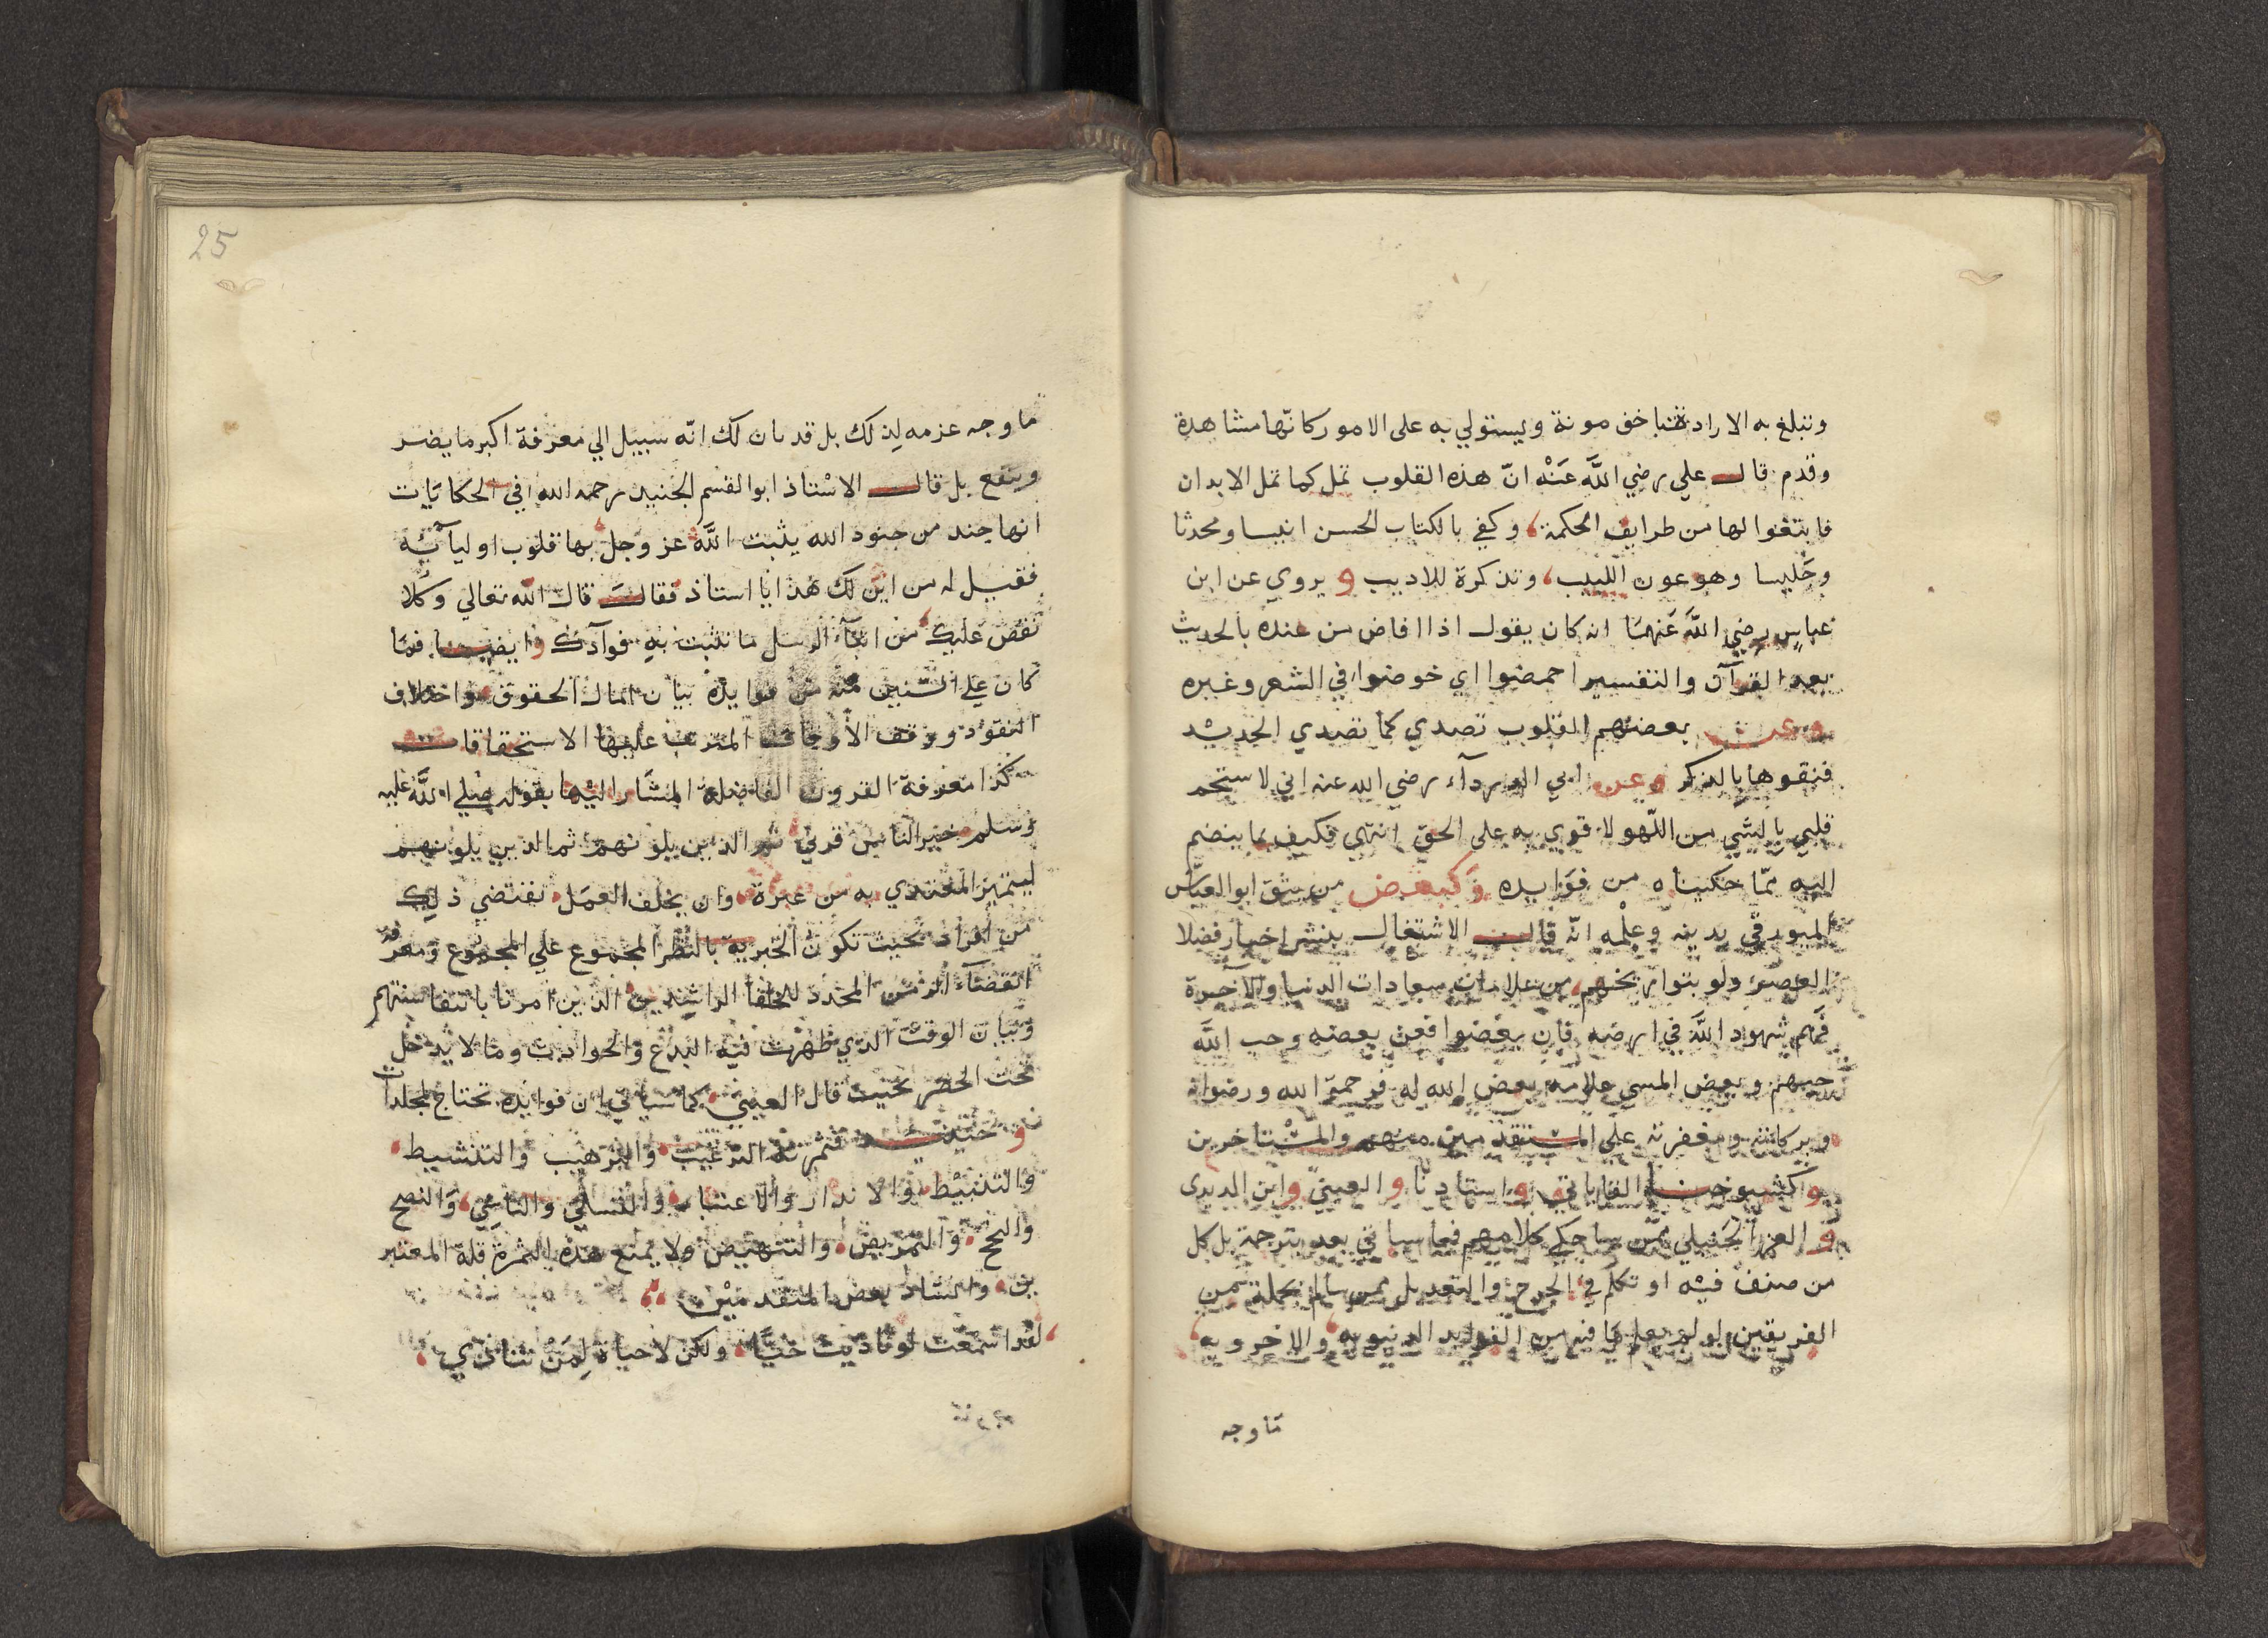 وتبلغ به الارادة باخف مونة ويستولي به على الامور كانّها مشاهدة
وقدم قال علي رضي اللّه عَنْه انّ هذه القلوب تمل كما تمل الابدان
فابتغوا لها من طرايف الحكمة، وكفي بالكتاب الحسن انيسا ومحدثا
وجَليسا وهو عون اللبيب، وتذكرة للاديب و يروي عن ابن
عباس رضي اللّه عَنهمَا انه كان يقول اذا افاض من عنده بالحديث
بعد القرآن والتفسير احمضوا اي خوضوا في الشعر وغيره
وعن بعضهم القلوب تصدي كما تصدي الحديْد
فنقوها بالذكر وعن ابي الدرداء رضي الله عنه اني لاستجم
قلبي بالشي من اللّهو لا قوي به على الحق انتهى فكيف بما ينضم
اليه ممّا حكيناه من فوَايده وَكيف من سَبق ابو العبّاس
الميورقي بدينه وعِلْمه انّه قال الاشتغال بنشر اخبار فضلا
العصر ولو بتواريخهم، من علامات سعادات الدنيا والآخرة
فَهم شهود اللّه في ارضه فان بغضوا فعن بعضه وحب اللّه
حبهم وبعض المسي علامة بعض الله له فرحمة الله ورضوانه
وبركاته ومغفرته علي المتقدمين منهم والمْتاخرين
وكشيوخنا القاياتي و استاذنا و العيني و ابن الديري
و العز الحَنبلي ممّن ساحكي كلامهم فيما سياتي بعد بترجمة بل كل
من صنف فيْه او تكلّم في الجرح والتعديل ممن سالم بجملة من
الفريقين لو لم يعلم ما فيه من الفوايد الدنيويه، والاخرويه،
مَا وجه
25
ما وجه عزمه لذلك بل قد بان لك انّه سبيل الي معرفة اكبر ما يضر
وينفع بل قال الاسْتاذ ابو القسم الجنيد رحمه الله في الحكايَات
انها جند من جنود الله يثبت اللَّه عز وجل بها قلوب اوليآئِه
فقيل له من اين لك هذا يا استاذ فقال قال الله تعالي وكلا
نقص عليك من انبآء الرسل ما نثبت به فوآدك و ايضا فمَا
كان علي السنين منه من فوايده بيان امال الحقوق، واختلاف
النقود ووقف الاوقاف المترتب عليها الاستحقاقات
كذا معرفة القرون الفاضلة المشَار اليْها بقوله صلي اللَّه عليه
وسلم خير الناس قرني ثم الذين يلونهم ثم الذين يلونهم
ليتميز المقتدي به من غيرة، وان يخلف العمل، تقتضي ذلك
من افراد بحيث تكون الخيرية بالنظر المجموع علي المجموع ومعرفة
انقضاء الزمن المحدد للخلفا الراشدين الذين امرنا باتفا سنتهم
وبيان الوقت الذي ظهرت فيْه البدع والحوادث وما لا يدخل
تحت الحصر بحيث قال العيني كما سياتي ان فوايده تحتاج لمجلدات
و حينيذ فثمرته الترغيب والترهيب والتنشيط،
والتثبيْط، والانذار والاعتبار، والتسلي والتاسي، والنصح
والنجح والتمريض، والتنهيض، ولا يمنع هذه الثمرة قلة المعتبر
ين، وانشاد بعض المتقدميْن،
، لقد اسْمَعْت لوْ ناديت حَيَّا، ولكن لا حياة لِمَنْ تنادي،